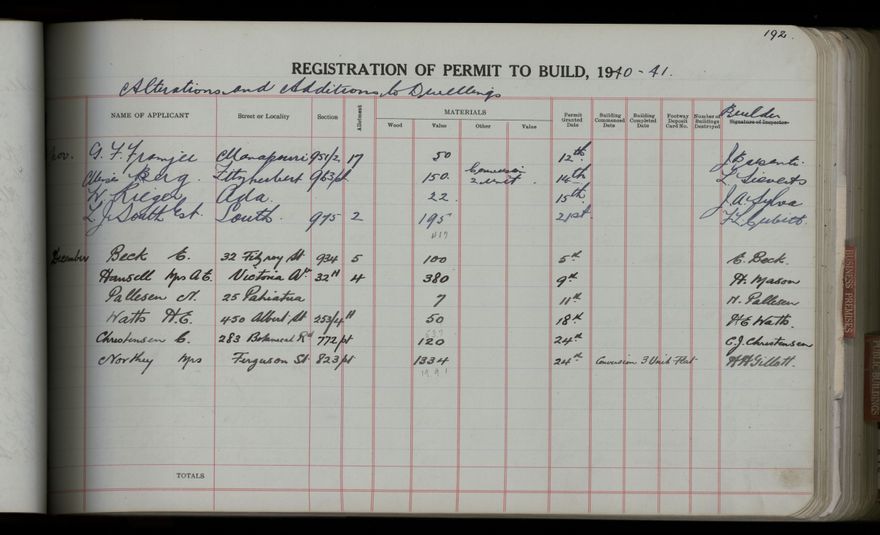 192.
REGISTRATION OF PERMIT TO BUILD, 1940-41.
Alterations and Additions to Dwellings
NAME OF APPLICANT Street or Locality Section Allotment MATERIALS Permit Granted Date Building Commenced Date Building Completed Date Footway Deposit Card No. Number of Buildings Destroyed Builder Signature of Inspector
Wood Value Other Value
Nov. G. F. Framjee Manapouri 951/2 17 50 12th
Berg. Fitzherbert 963/pt 150. Conversion 2 unit. 14th L Sieverts
W. Kieger Ada. 22. 15th. J. A. Sylva
South. 975 2 195 21st
417
December Beck C. 32 Fitzroy St 934 5 100 5th C. Beck.
Hansell Mrs A. E. Victoria Av 32 H 4 380 9th H. Mason
Pallesen N. 25 Pahiatua 7 11th N. Pallesen
Watts H. E. 450 Albert St 253/4 H 50 18th H E Watts.
537
Christensen C. 283 Botanical Rd 772/pt 120 24th C. J. Christensen
Northey Mrs Ferguson St 823/pt 1334 24th Conversion 3 Unit Flat H H Gillott.
1991
TOTALS
BUSINESS PREMISES
PUBLIC BUILDINGS